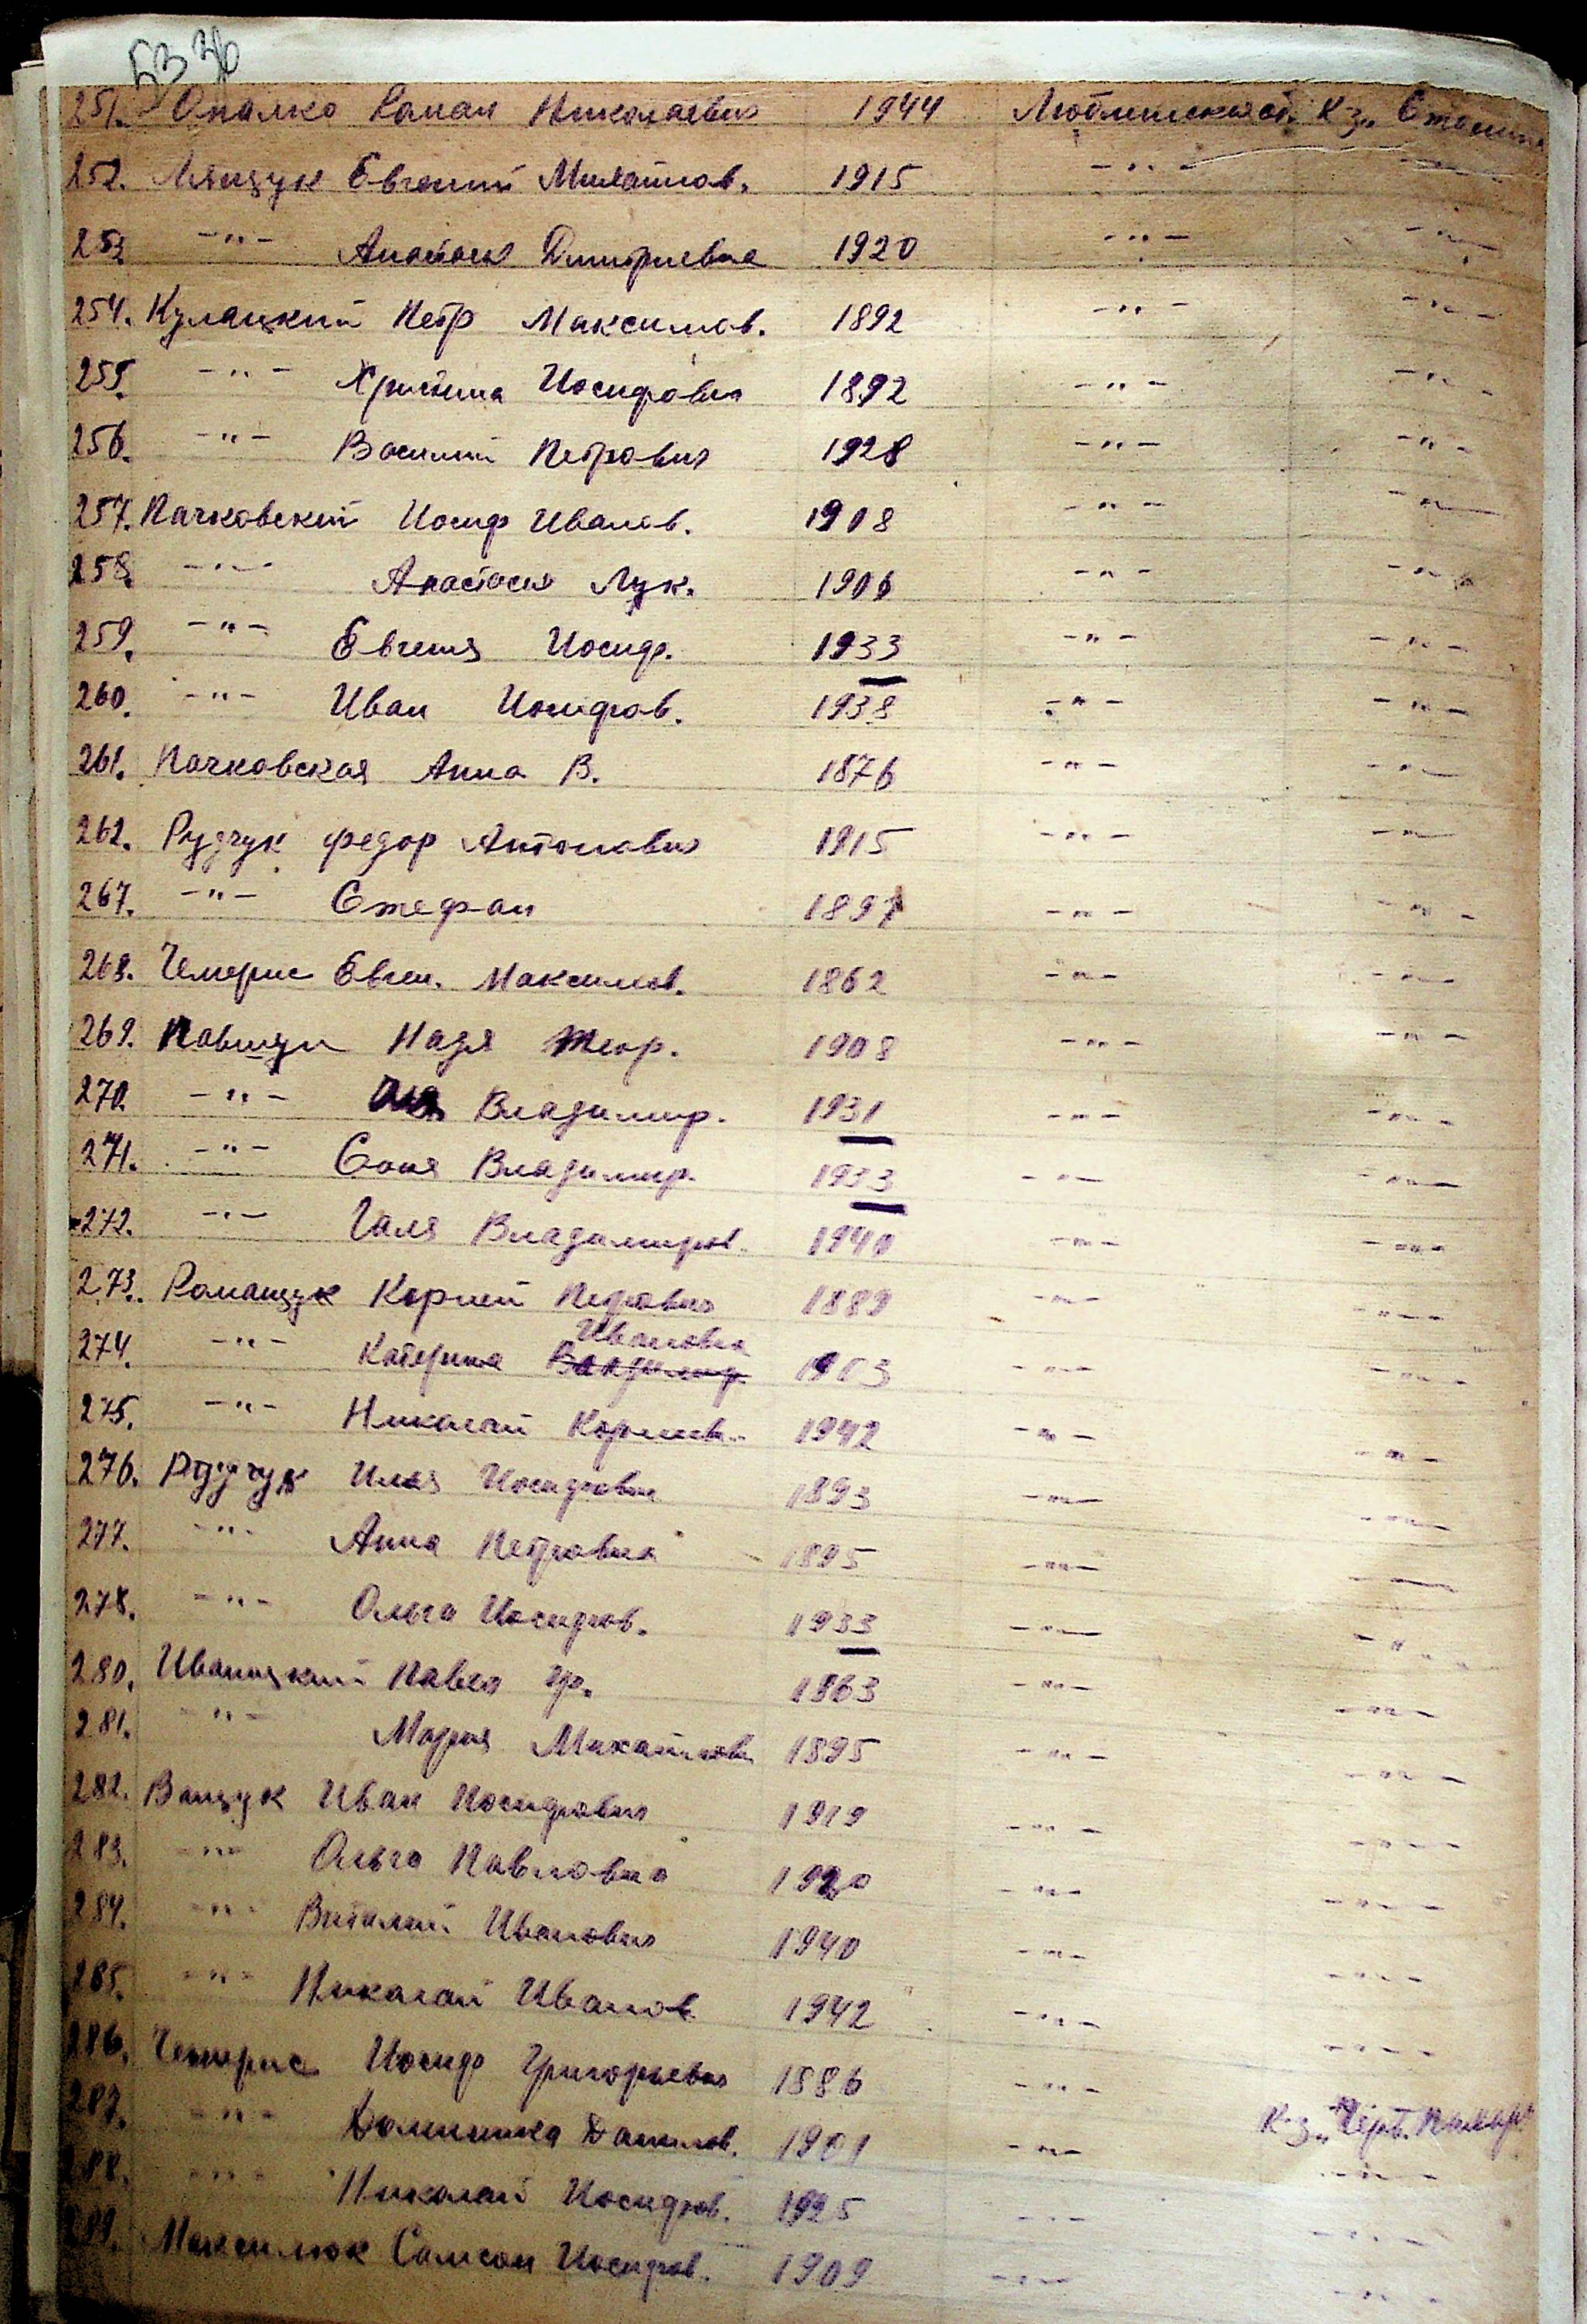 251. Опалко Роман Николаевич 1944 Люблинская об. К-з „Сталина
252. Лящук Евгений Михайлов. 1915 -"- -"-
253 -"- Анастасия Дмитриевна 1920 -"- -"-
254. Кулацкий Петр Максимов. 1892 -"- -"-
255. -"- Христина Иосифовна 1892 -"- -"-
256. -"- Василий Петрович 1928 -"- -"-
257. Пачковский Иосиф Иванов. 1908 -"- -"-
258. -"- Анастасия Лук. 1906 -"- -"-
259. -"- Евгения Иосиф. 1933 -"- -"-
260. -"- Иван Иосифов. 1938 -"- -"-
261. Пачковская Анна В. 1876 -"- -"-
262. Рудчук Федор Антонович 1915 -"- -"-
267. -"- Стефан 1897 -"- -"-
268. Чемерис Евген. Максимов. 1862 -"- -"-
269. Надя 1908 -"- -"-
270. -"- Владимир. 1931 -"- -"-
271. -"- Соня Владимир. 1933 -"- -"-
272. -"- Галя Владимиров. 1940 -"- -"-
273. Романщук Корней Петрович 1889 -"- -"-
Ивановна
274. -"- Катерина Владимир 1903 -"- -"-
275. -"- Николай Корнеев. 1942 -"- -"-
276. Рудчук Илья Иосифович 1893 -"- -"-
277. -"- Анна Петровна 1895 -"- -"-
278. -"- Ольга Иосифов. 1933 -"- -"-
280. Иваницкий Павел Гр. 1863 -"- -"-
281. -"- Мария Михайлов 1895 -"- -"-
282. Ващук Иван Иосифович 1919 -"- -"-
283. -"- Ольга Павловна 1920 -"- -"-
284. -"- Виталий Иванович 1940 -"- -"-
285. -"- Николай Иванов 1942 -"- -"-
286. Чемерис Иосиф Григорьевич 1886 -"- -"-
287. -"- Доминика Данилов. 1901 -"- К-з „Черв. Пахарь
288. -"- Николай Иосифов. 1925 -"- -"-
289. Максимюк Самсон Иосифов. 1909 -"- -"-